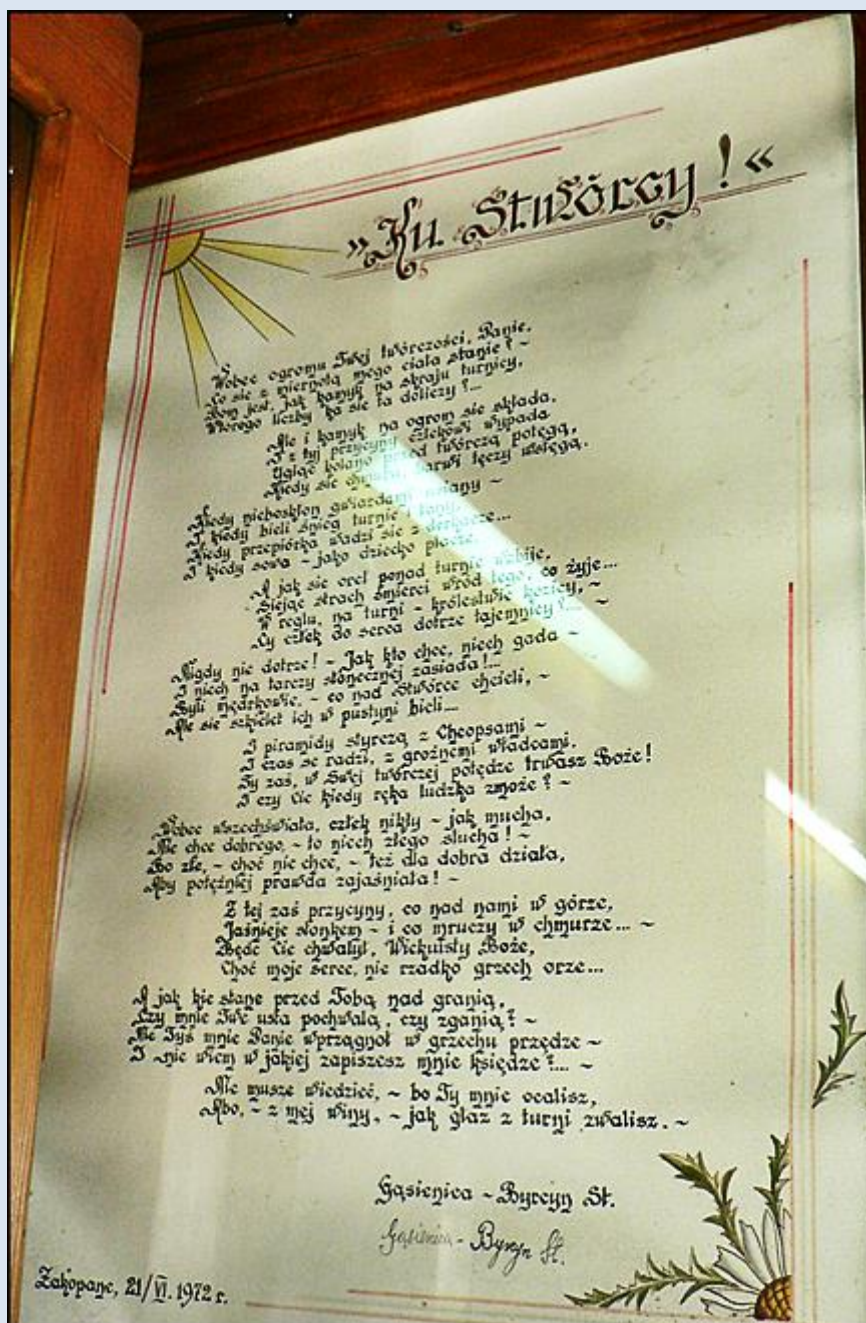 »Ku Stwórcy!«
Wobec ogromu Twej twórczości, Panie,
Co sie z miernotą mego ciała stanie? ~
Bom jest, jak kamyk na skraju turnicy,
Którego liczby ka sie ta doliczy?...
Ale i kamyk na ogrom sie składa,
I z tyj przycyny człekowi wypada
Ugiąć kolano przed twórczą potęgą,
Kiedy sie chmura barwi tęczy wstęgą.
Kiedy nieboskłon gwiazdami usiany ~
I kiedy bieli śnieg turnie i łany,
Kiedy przepiórka wadzi sie z derkacze...
I kiedy sowa ~ jako dziecko płacze,
A jak sie orcł ponad turnie wzbije,
Siejąc strach śmierci wśród tego, co żyje...
W reglu, na turni ~ królestwie kozicy, ~
Cy człek do serca dotrze tajemnicy?... ~
Nigdy nie dotrze! ~ Jak kto chce, niech gada ~
I niech na tarczy słonecznej zasiada!...
Byli mędrkowie, ~ co nad Stwórce chcieli, ~
Ale sie szkielet ich w pustyni bieli...
I piramidy styrczą z Cheopsami ~
I czas se radzi, z groźnemi władcami,
Ty zaś, w Swej twórczej potędze trwasz Boże!
I czy Cie kiedy ręka ludzka zmoże? ~
Wobec wszechświata, człek nikły ~ jak mucha,
Nie chce dobrego, ~ to niech złego słucha! ~
Bo złe, ~ choć nie chce, ~ też dla dobra działa,
Aby potężniej prawda zajaśniała! ~
Z tej zaś przycyny, co nad nami w górze,
Jaśnieje słonkem ~ i co mruczy w chmurze... ~
Będe Cie chwalył, Wiekuisty Boże,
Choć moje serce, nie rzadko grzech orze...
A jak kie stane przed Tobą nad granią,
Czy mnie Twe usta pochwalą, czy zganią? ~
Ale Tyś mnie Panie wprzągnoł w grzechu przędze ~
I nie wiem w jakiej zapiszesz mnie księdze?... ~
Nie musze wiedzieć, ~ bo Ty mnie ocalisz,
Abo, ~ z mej winy, ~ jak głaz z turni zwalisz. ~
Gąsienica ~ Byrcyn St.
Gąsienica - Byrcyn St.
Zakopane, 21/VI. 1972 r.